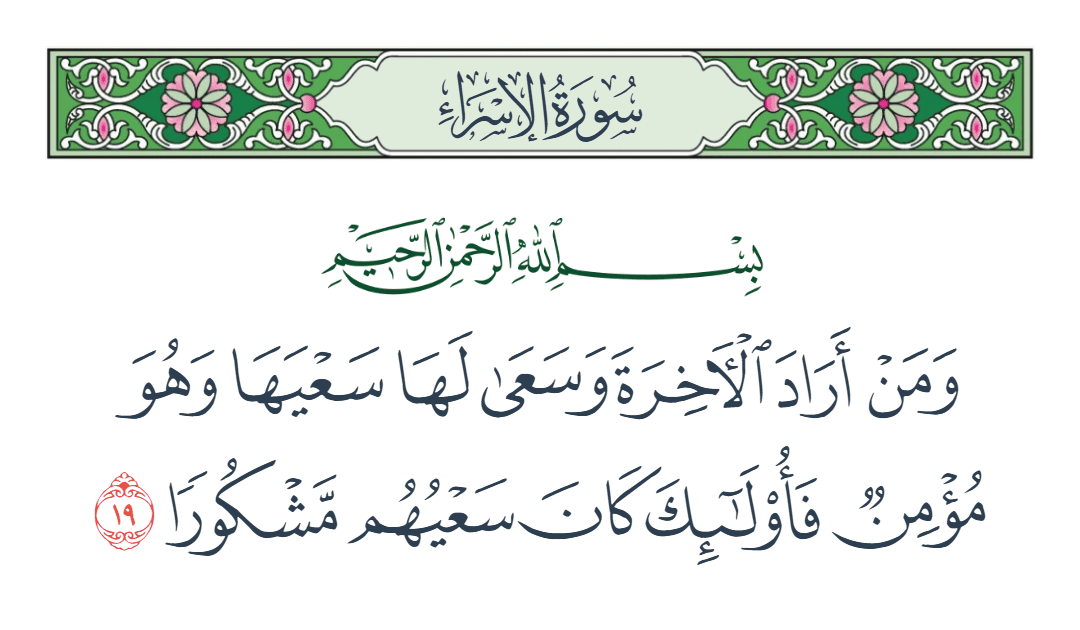 سُورَةُ الإِسْرَاءِ
بِسْمِ ٱللَّهِ ٱلرَّحْمَٰنِ ٱلرَّحِيمِ
وَمَنْ أَرَادَ ٱلْأَخِرَةَ وَسَعَىٰ لَهَا سَعْيَهَا وَهُوَ
مُؤْمِنٌ فَأُوْلَٰٓئِكَ كَانَ سَعْيُهُم مَّشْكُورًا ١٩